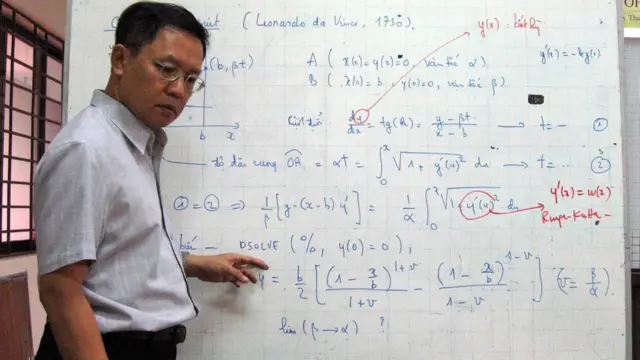 (Leonardo da Vinci, 1730).
y(x) - bất kỳ
(b, βt)
A ( x(0) = y(0) = 0, vận tốc α )
y'(x) = -log(x)
B ( x(0) = b, y(0) = 0, vận tốc β )
b x
dy/dx = tg(A) = (y - βt)/(x - b) → t = - ①
độ dài cung OA = αt = ∫₀ˣ √(1 + y'(u)²) du → t = ... ②
① = ② ⇒ 1/β [y - (x - b) y'] = 1/α ∫₀ˣ √(1 + y'(u)²) du
y'(x) = w(x)
Runge-Kutta -
DSOLVE (%, y(0) = 0);
y = b/2 [ (1 - x/b)^(1+v) / (1+v) - (1 - x/b)^(1-v) / (1-v) ] (v = β/α).
lim (β → α) ?